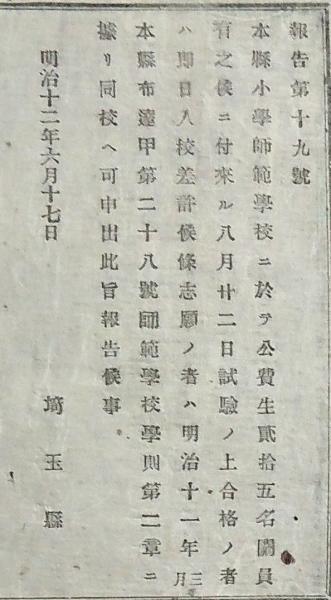 報告第十九號
本縣小學師範學校ニ於テ公費生貳拾五名闕員
有之候ニ付來ル八月廿二日試驗ノ上合格ノ者
ハ即日入校差許候條志願ノ者ハ明治十一年三月
本縣布達甲第二十八號師範學校學則第二章ニ
據リ同校ヘ可申出此旨報告候事
明治十二年六月十七日
埼玉縣